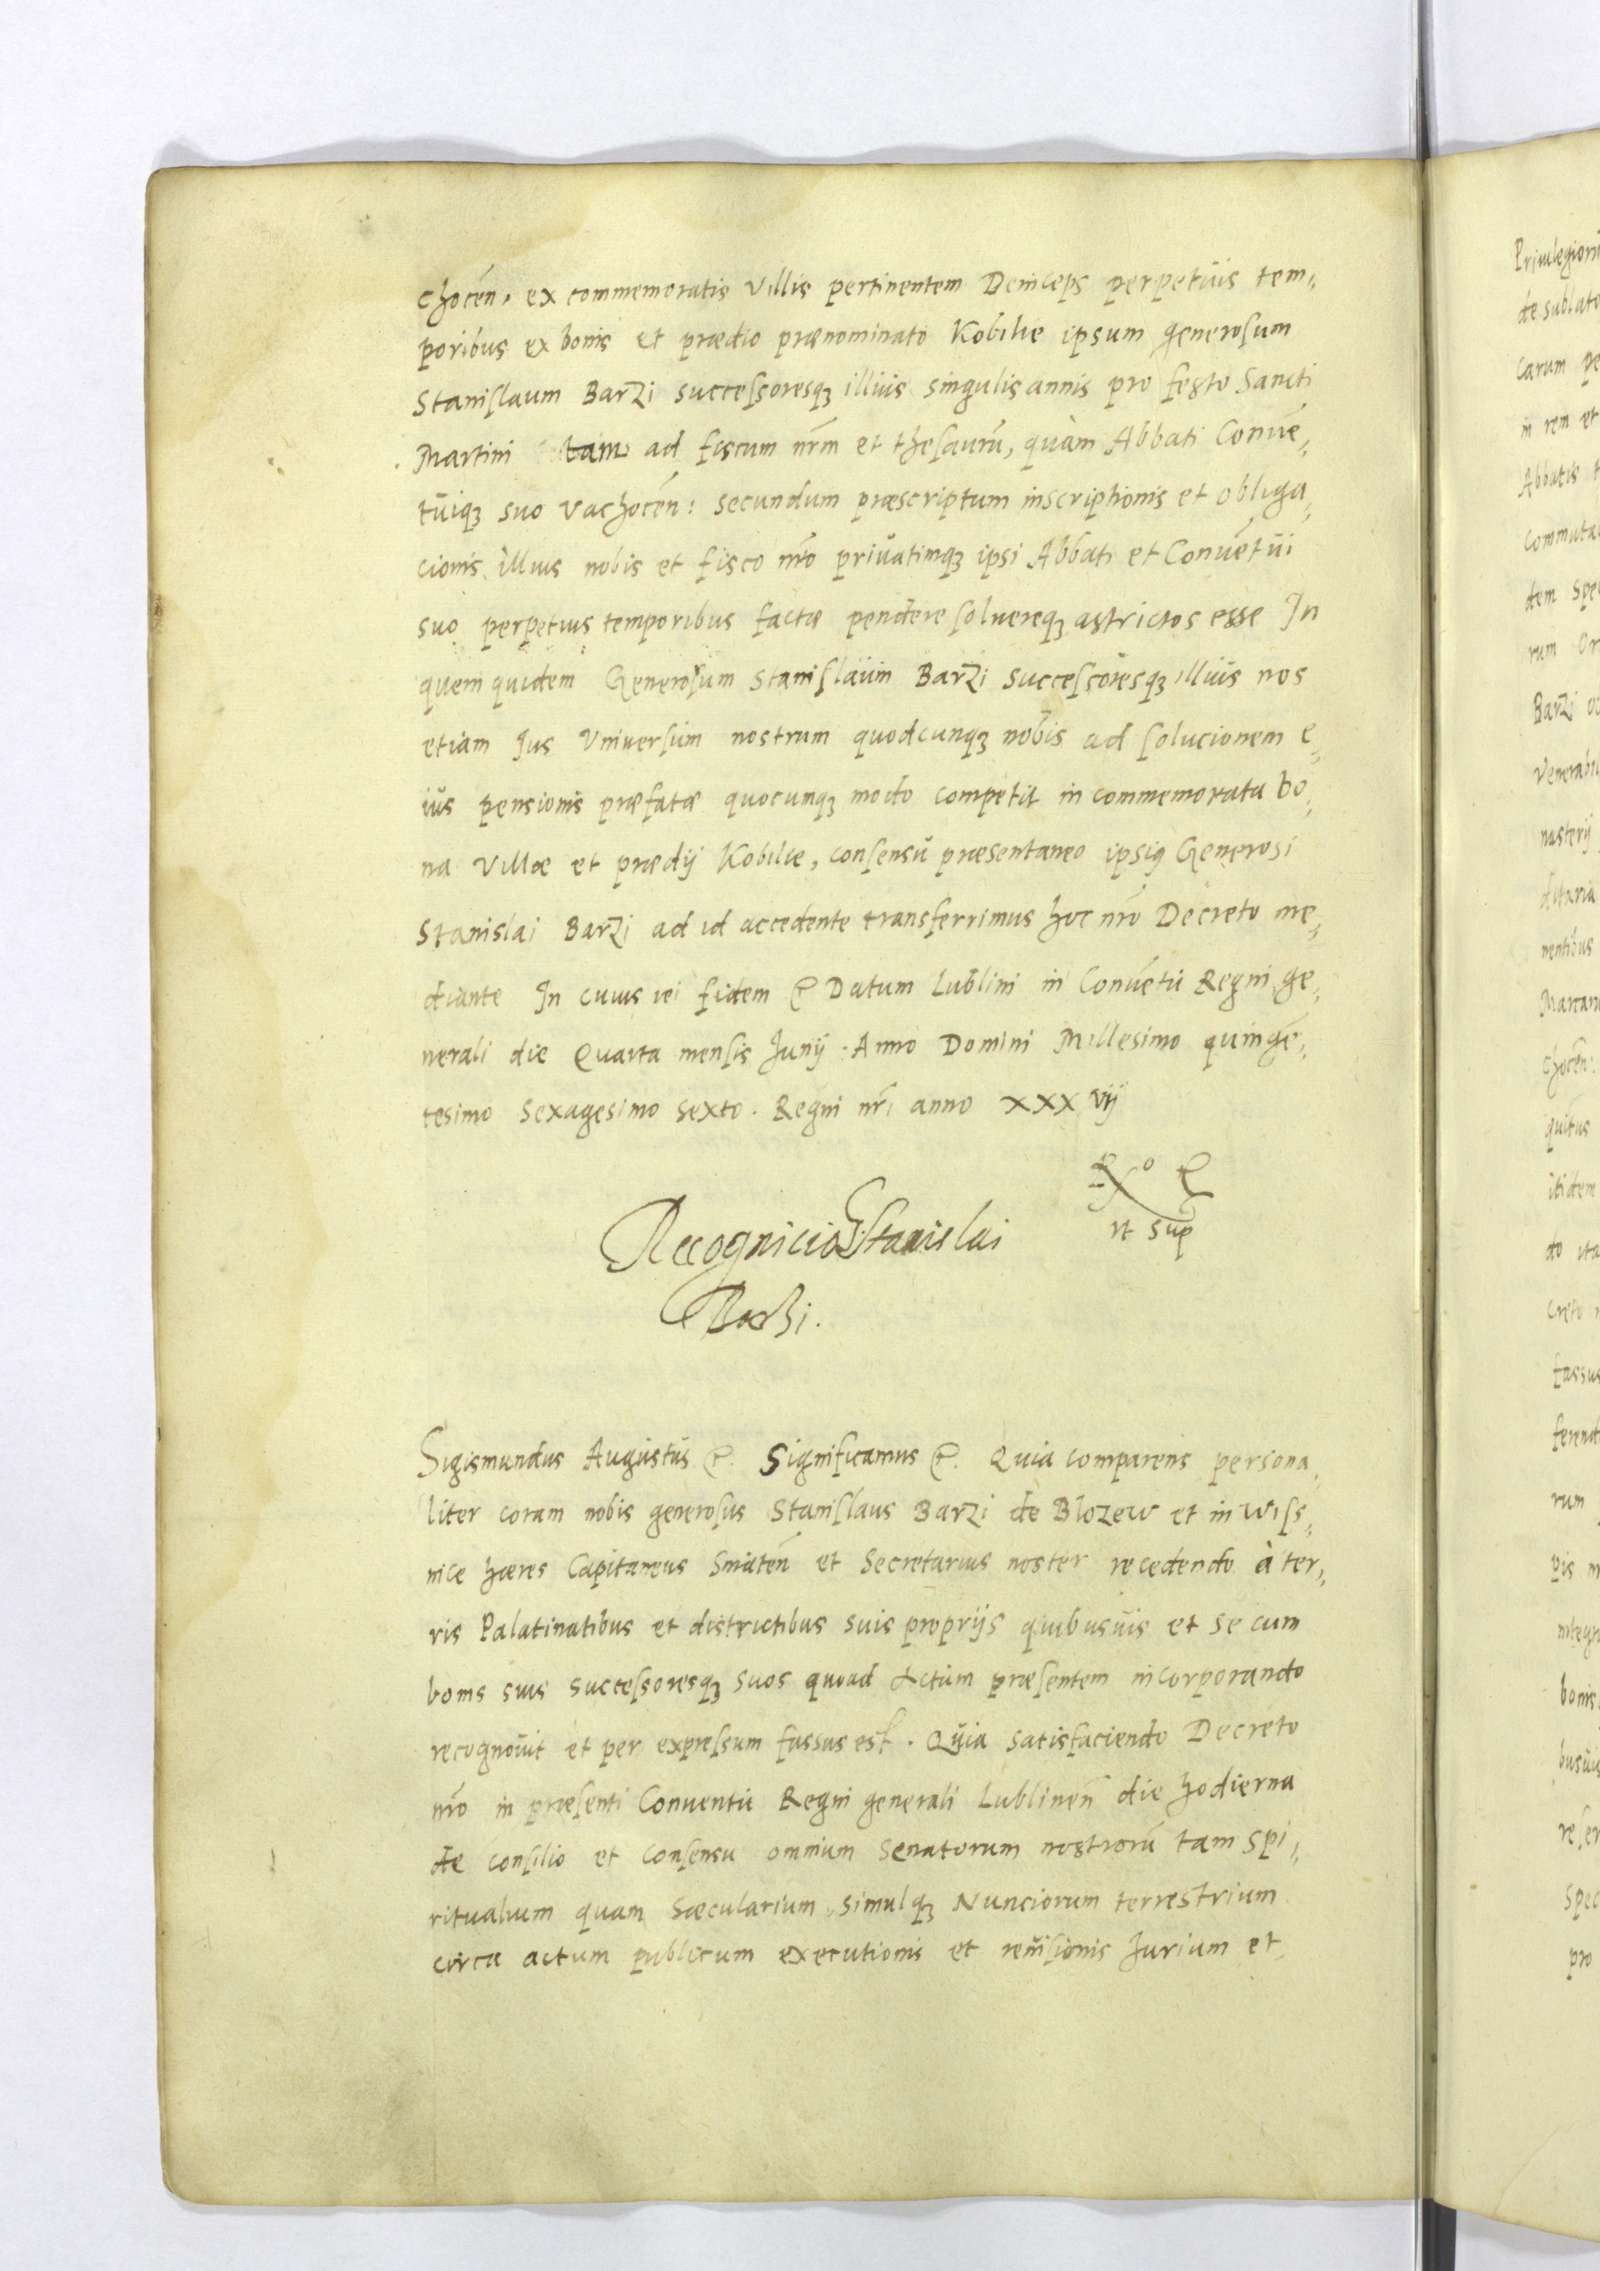 chocen̄, ex commemoratis villis pertinentem Deinceps perpetuis tem,,
poribus ex bonis et prædio prænominato Kobilie ipsum generosum
Stanislaum Barzi successoresqꝫ illius singulis annis pro festo Sancti
Martini tam ad fiscum nrm̄ et thesaurū, quàm Abbati Convē,,
tuiqꝫ suo vachocen̄: secundum præscriptum inscriptionis et obliga,,
cionis illius nobis et fisco nrō privatimqꝫ ipsi Abbati et Convētui
suo perpetuis temporibus factæ pendere solvereqꝫ astrictos esse In
quem quidem Generosum Stanislaum Barzi successoresqꝫ illius nos
etiam Jus Universum nostrum quodcunqꝫ nobis ad solucionem e,,
ius pensionis præfatæ quocunqꝫ modo competit in commemorata bo,,
na villæ et prædij Kobilie, consensu præsentaneo ipsiꝰ Generosi
Stanislai Barzi ad id accedente transferrimus hoc nrō Decreto me,,
diante In cuius rei fidem &c Datum Lublini in Conventu Regni ge,,
nerali die Quarta mensis Junij. Anno Domini Millesimo quingē,,
tesimo sexagesimo sexto. Regni nrī anno XXX vij
ut sup
Recognicio G. Stanislai
Barzi.
Sigismundus Augustus &c. Significamus &c. Quia comparens persona,,
liter coram nobis generosus Stanislaus Barzi de Blozew et in Wiss,,
nice hæres Capitaneus Sniaten̄ et Secretarius noster recedendo à ter,,
ris Palatinatibus et districtibus suis proprijs quibusvis et se cum
bonis suis successoresqꝫ suos quoad Actum præsentem incorporando
recognovit et per expressum fassus est. Quia satisfaciendo Decreto
nrō in præsenti Conventu Regni generali Lublinen̄ die hodierna
de consilio et consensu omnium Senatorum nostrorū tam Spi,,
ritualium quam Sæcularium, simulqꝫ Nunciorum terrestrium
circa actum publicum executionis et revisionis Jurium et
Privilegiorū
de sublato
carum
in rem et
Abbatis
commuta
dem
rum
Barzi
Venerabi
nasterij
ditaria
nentibus
chocen̄:
itidem
fassus
ferend
rum
bonis
pro